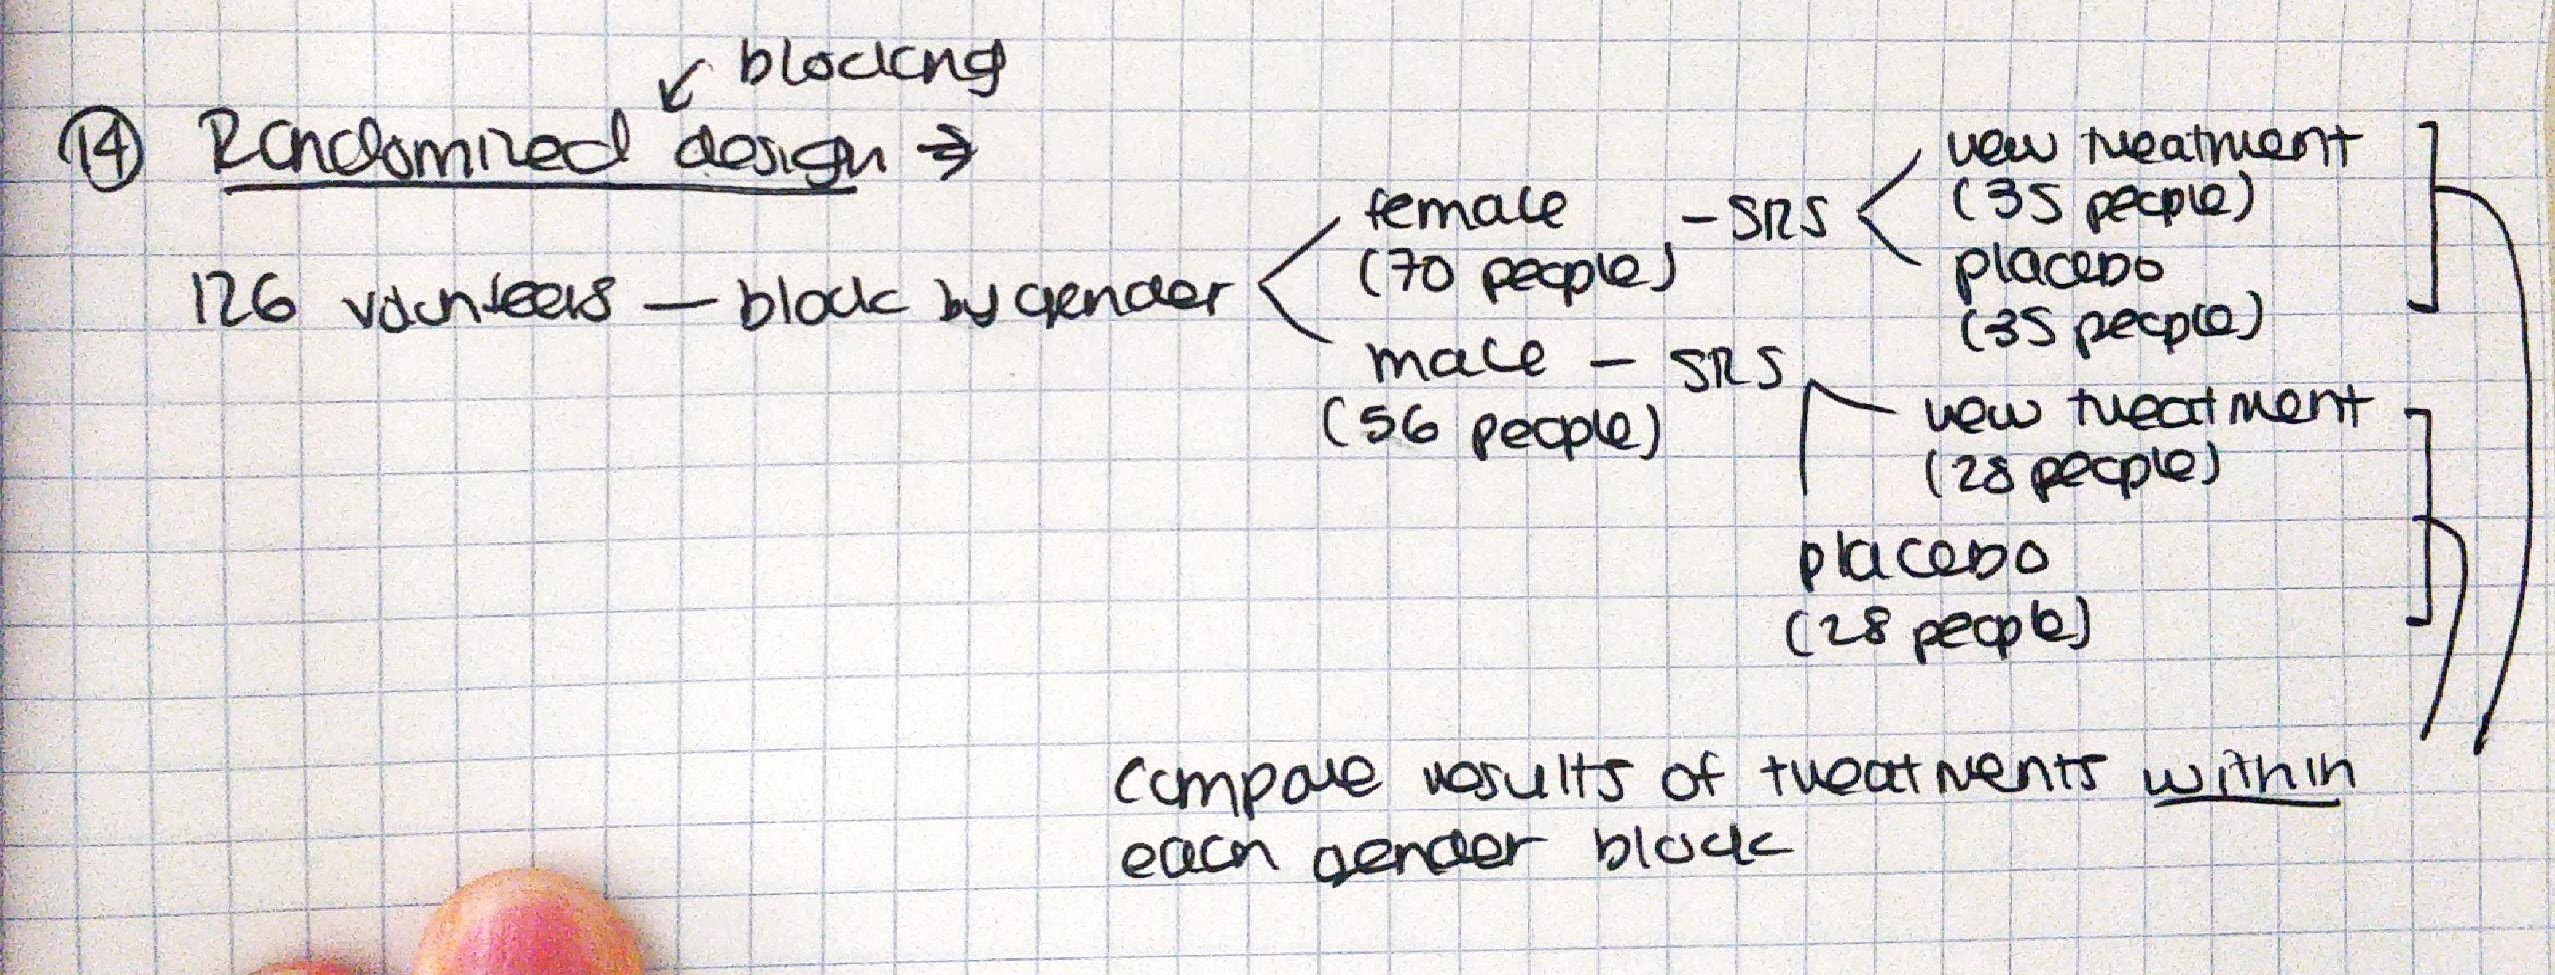 blocking
14 Randomized design →
126 volunteers — block by gender
female - SRS
(70 people)
new treatment
(35 people)
placebo
(35 people)
male - SRS
(56 people)
new treatment
(28 people)
placebo
(28 people)
compare results of treatments within
each gender block